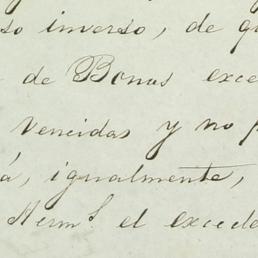 so inverso, de qu
de Bonus exce
vencidas y no p
á, igualmente,
Herms el excede